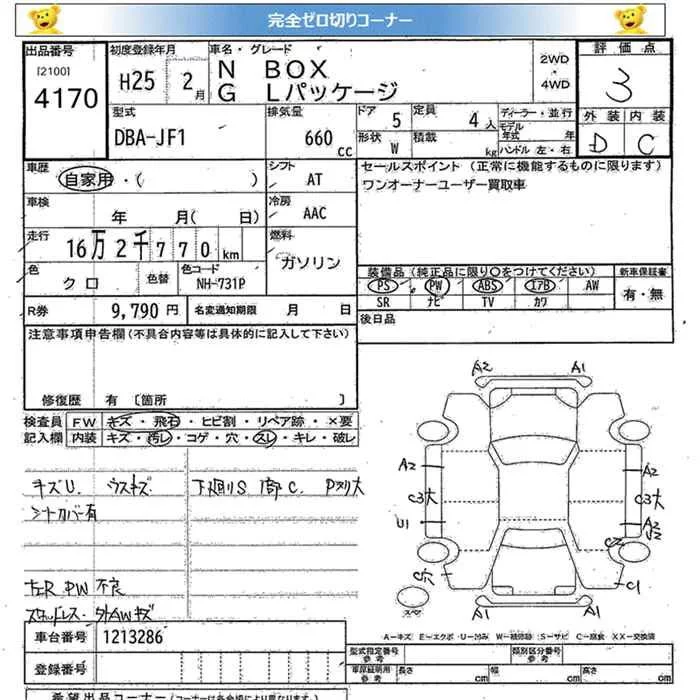 完全ゼロ切りコーナー
出品番号 初度登録年月 車名・グレード 評価点
[2100] 4170 H25 2月 N BOX 2WD ・ 4WD 3
G Lパッケージ
型式 排気量 ドア 5 定員 4人 ディーラー・並行 外装 内装
DBA-JF1 660 cc 形状 W 積載 kg モデル年式 年 D C
ハンドル 左・右
車歴 シフト セールスポイント (正常に機能するものに限ります)
自家用・( ) AT ワンオーナーユーザー買取車
車検 冷房
年 月( 日) AAC
走行 燃料
16万2千770km ガソリン
色 色替 色コード 装備品(純正品に限り○をつけてください) 新車保証書
クロ NH-731P PS PW ABS エアB AW 有・無
SR ナビ TV カワ
R券 9,790円 名変通知期限 月 日 後日品
注意事項申告欄(不具合内容等は具体的に記入して下さい)
修復歴 有 [箇所 ]
検査員 FW キズ・飛石・ヒビ割・リペア跡・×要
記入欄 内装 キズ・汚レ・コゲ・穴・スレ・キレ・破レ
A2 A1
キズU. ウスキズ 下廻りS
シートカバー有
A2 A2
C3大 C3大
U1 A2
C2
C1
PW 不良
スタッドレス 外AWキズ
A1 A1
車台番号 1213286
A-キズ E-エクボ U-凹み W-補修跡 S-サビ C-腐食 XX-交換済
登録番号 型式指定番号 参考 類別区分番号 参考
車庫証明用 参考 長さ cm 幅 cm 高さ cm
希望出品コーナー